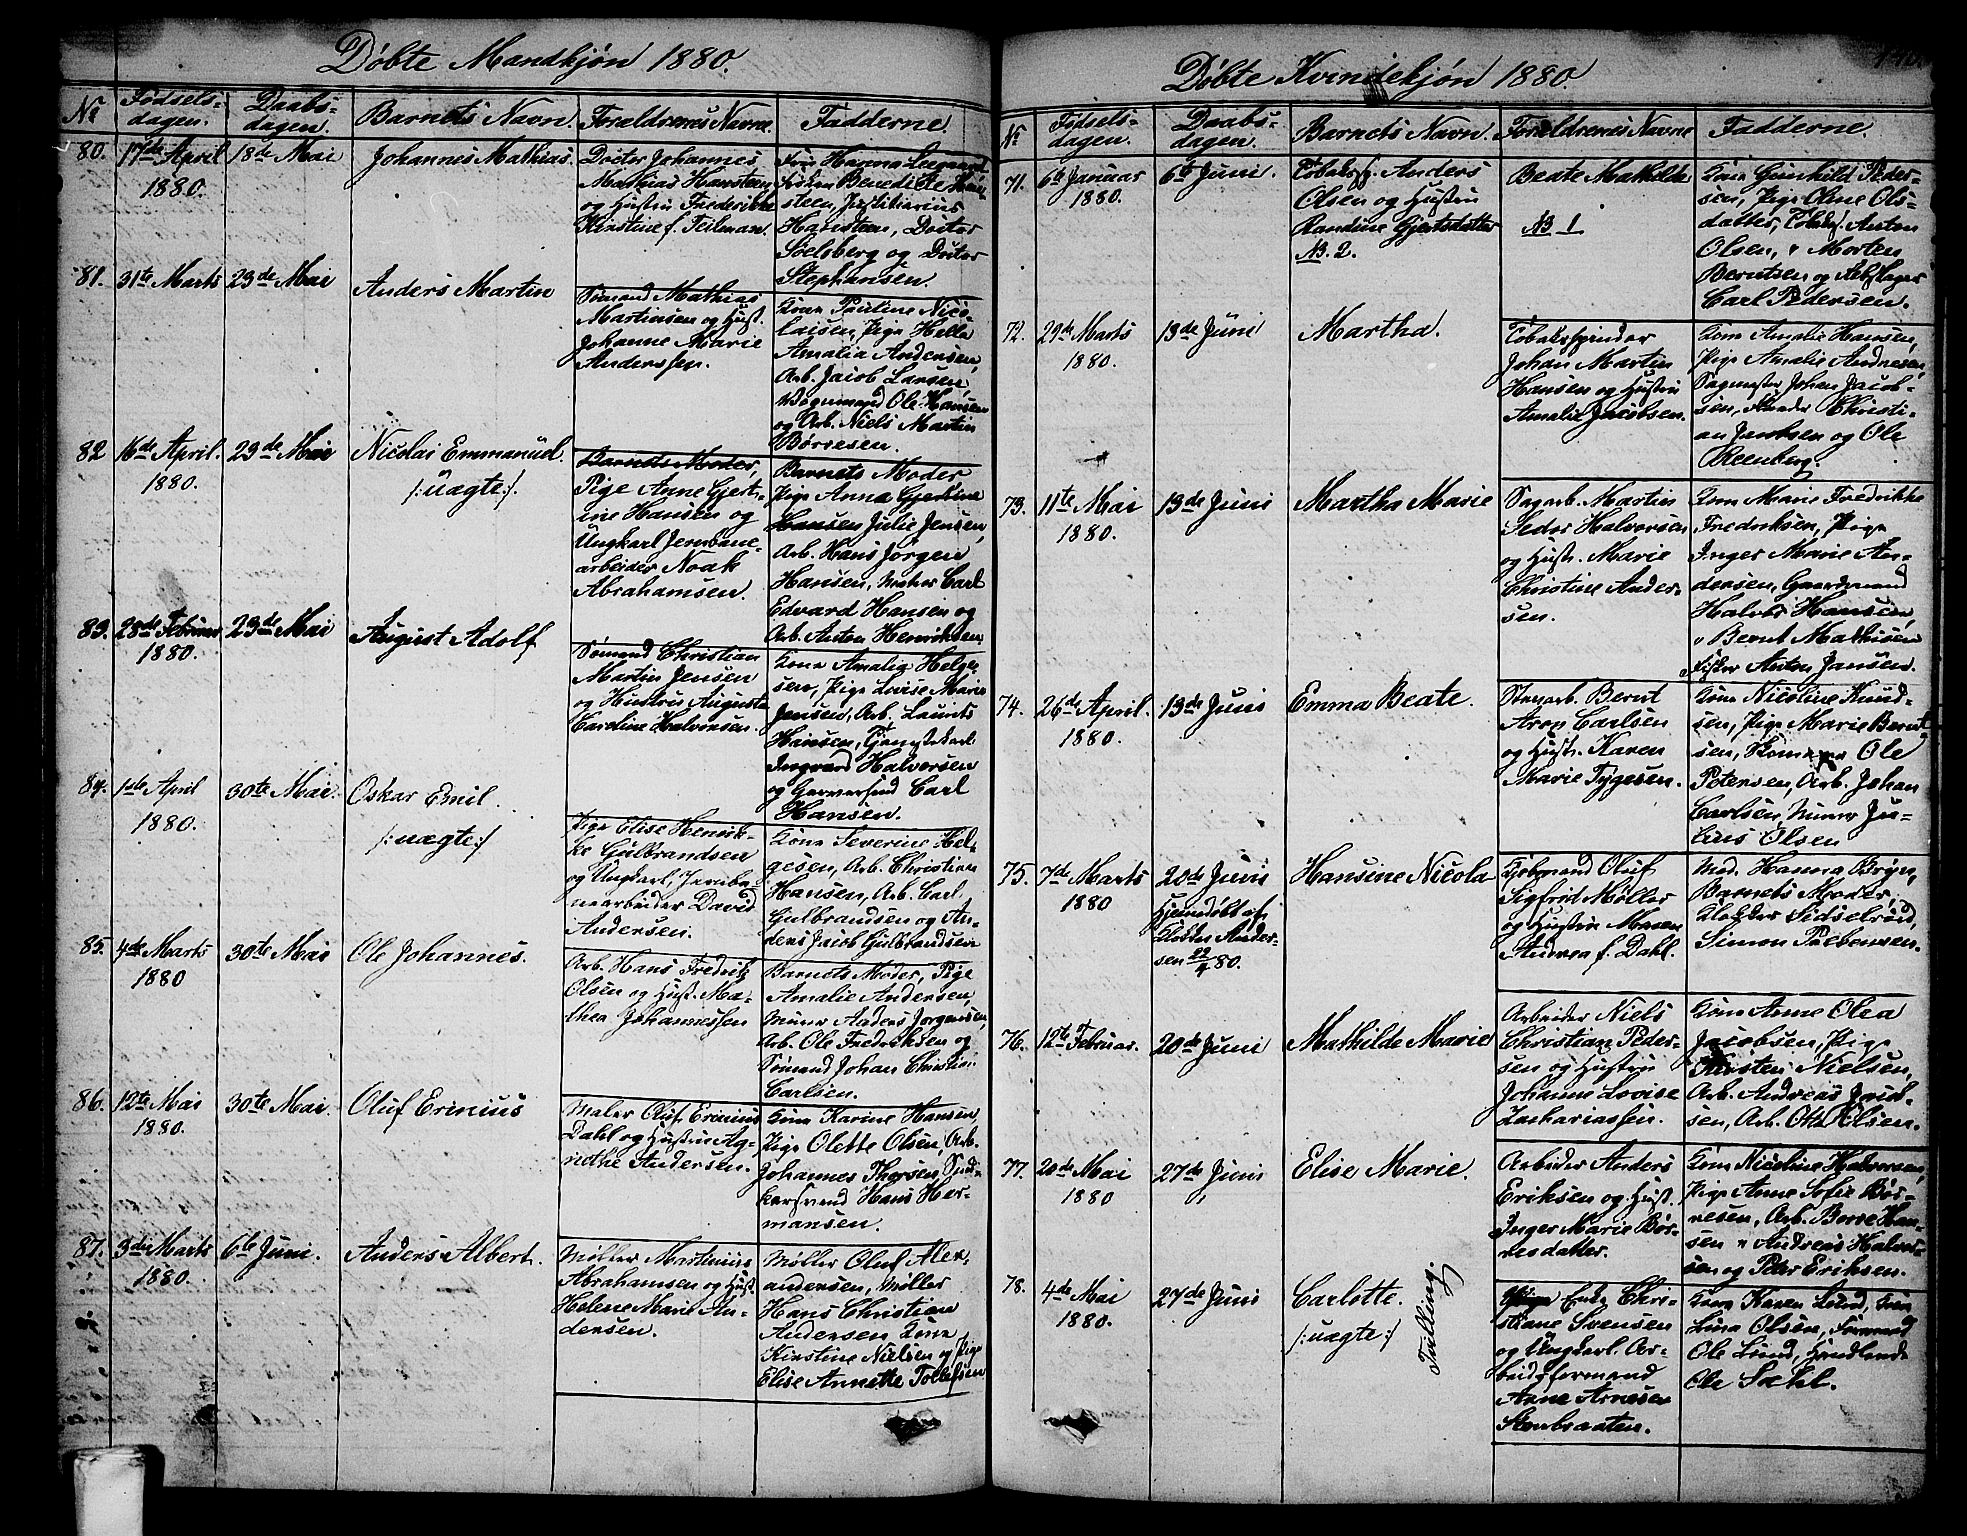 Døbte Mandkjøn 1880.
№
Fødsels-
dagen.
Daabs-
dagen.
Barnets Navn.
Forældrenes Navne.
Fadderne.
80.
17de April
1880.
18de Mai
Johannes Mathias.
Doctor Johannes
Mathias Hansteen
og Hustru Frederikke
Kirstine f. Feilman.
Frøken Benedikte Han-
steen, Justitiarius
Hansteen, Doctor
Soelsberg og Doctor
Stephansen.
81.
31te Marts
23de Mai
Anders Martin
Sømand Mathias
Martinsen og Hust.
Johanne Marie
Anderssen.
Kone Pauline Nico-
laisen, Pige Hella
Amalia Andersen,
Arb. Jacob Larsen,
Vognmand Ole Hansen
og Arb. Niels Martin
Børresen.
82
16de April.
1880.
23de Mai
Nicolai Emmanuel.
/: uægte :/.
Barnets Moder,
Pige Anne Gjert-
ine Hansen og
Ungkarl Jernbane-
arbeider Noak
Abrahamsen.
Barnets Moder
Pige Anna Gjertine
Hansen Julie Jensen,
Arb. Hans Jørgen
Hansen, Carl
Edvard Hansen og
Arb. Anton Henriksen.
83.
28de Februar
1880.
23de Mai
August Adolf
Sømand Christian
Martin Jensen
og Hustru Augusta
Caroline Halvorsen.
Kone Amalia Helge-
sen, Pige Lovise Marie
Jensen, Arb. Laurits
Hansen, Tjenestekarl
Ingvard Halvorsen
og Garversvend Carl
Hansen.
84.
1ste April
1880.
30te Mai.
Oskar Emil.
/: uægte :/
Pige Elise Henrik-
ke Gulbrandsen
og Ungkarl, Jernba-
nearbeider David
Andersen.
Kone Severine Hel-
gesen, Arb. Christian
Hansen, Arb. Carl
Gulbrandsen og An-
ders Jacob Gulbrandsen
85.
4de Marts
1880
30te Mai
Ole Johannes.
Arb. Hans Fredrik
Olsen og Hust. Ma-
thea Johannessen
Barnets Moder, Pige
Amalie Andersen,
Murer Anders Jørgensen,
Arb. Ole Fredriksen og
Sømand Johan Christian
Carlsen.
86.
12te Mai
1880.
30te Mai.
Oluf Erinius
Maler Oluf Erinius
Dahl og Hustru Ag-
nethe Andersen.
Kone Karine Hansen
Pige Olette Olsen, Arb.
Johannes Thorsen, Snid-
kersvend Hans Her-
mansen.
87.
3die Marts
1880.
6te Juni.
Anders Albert.
Møller Martinius
Abrahamsen og Hust.
Helene Marie An-
dersen.
Møller Oluf Alex-
andersen, Møller
Hans Christian
Andersen Kone
Kirstine Nielsen og Pige
Elise Annette Tollefsen
Døbte Kvindekjøn 1880.
№
Fødsels-
dagen.
Daabs-
dagen.
Barnets Navn.
Forældrenes Navne
Fadderne.
71.
6te Januar
1880.
6te Juni.
Tobaksf. Anders
Olsen og Hustru
Randine Gjertsdatter
NB. 2.
Beate Mathilde
NB 1
Kone Gunhild Peder-
sen, Pige Oline Ols-
datter, Tobaksf. Anton
Olsen, " Morten
Berntsen og
Carl Pedersen.
72.
29de Marts
1880.
13de Juni
Martha.
Tobaksspinder
Johan Martin
Hansen og Hustru
Amalie Jacobsen.
Kone Amalie Hansen,
Pige Amalie Andresen,
Sagmester Johan Jacob-
sen, Christi-
an Jacobsen og Ole
Reenberg.
73.
11te Mai
1880.
13de Juni
Martha Marie
Sagarb. Martin
Peder Halvorsen
og Hustr. Marie
Christine Ander-
sen.
Kone Marie Fredrikke
Fredriksen, Pige
Inger Marie An-
dersen, Gaardmand
Halvor Hansen,
" Bernt Mathisen
Fisker Anton Jansen.
74.
26de April.
1880.
13de Juni
Emma Beate.
Stenarb. Bernt
Aron Carlsen
og Hustr. Karen
Marie Tygesen.
Kone Nicoline Knud-
sen, Pige Marie Bernt-
sen, Ole
Petersen, Arb. Johan
Carlsen, Murer Ju-
lius Olsen
75.
7de Marts
1880
20de Juni
Hjemmedøbt af
Klokker Ander-
sen 22/4 80.
Hansine Nicola
Kjøbmand Oluf
Sigfrid Møller
og Hustru Maren
Andrea f. Dahl.
Mad. Hanna Bryn,
Barnets Moder,
Klokker Sidselrød,
Simon Paebensen.
76.
12te Februar.
20de Juni
Mathilde Marie
Arbeider Niels
Christian Peder-
sen og Hustru
Johanne Lovise
Zachariassen.
Kone Anne Olea
Jacobsen, Pige
Kirsten Nielsen,
Arb. Andreas Jacob-
sen, Arb. Otto Olsen.
77.
20de Mai
1880
27de Juni
Elise Marie.
Arbeider Anders
Eriksen og Hust.
Inger Marie Bør-
resdatter.
Kone Nicoline Halvorsen,
Pige Anne Sofie Bør-
resen, Arb. Børre Han-
sen " Andreas Halvor-
sen og Peter Eriksen.
78.
4de Mai
1880.
27de Juni
Carlotte.
/: uægte :/
Tvilling.
Enke Chri-
stiane Svensen
og Ungkarl. Ar-
beidsformand
Arne Arnesen
Stenbraaten.
Kone Karen Lund, Frøken
Lina Olsen, Formand
Ole Lund, Handlende
Ole Sæhl.